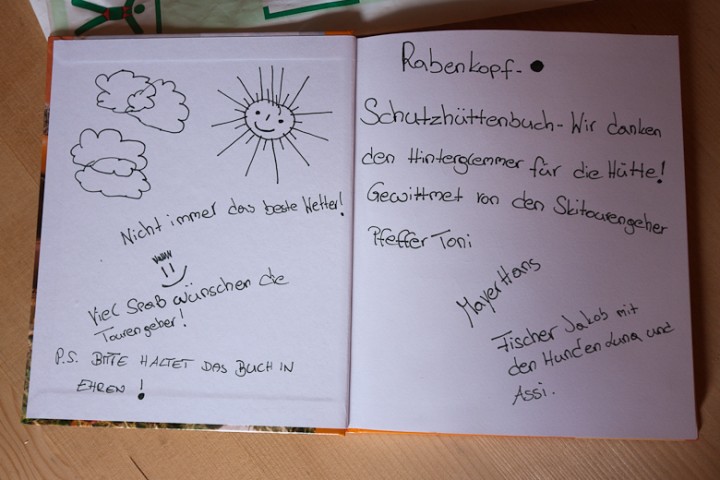 Nicht immer das beste Wetter!
Viel Spaß wünschen die
Tourengeher!
P.S. BITTE HALTET DAS BUCH IN
EHREN!
Rabenkopf-
Schutzhüttenbuch - Wir danken
den Hinterglemmer für die Hütte!
Gewittmet von den Skitourengeher
Pfeffer Toni
Mayer Hans
Fischer Jakob mit
den Hunden Luna und
Assi.